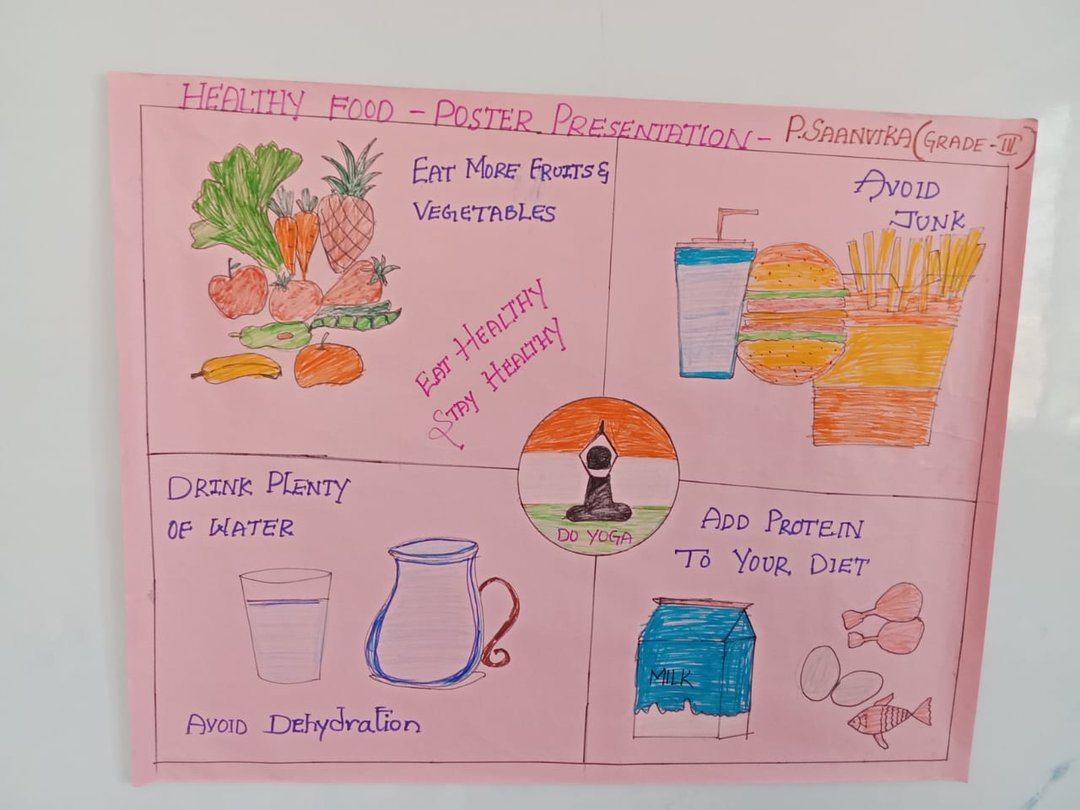 HEALTHY FOOD - POSTER PRESENTATION - P.SAANVIKA (GRADE-III)
EAT MORE FRUITS &
VEGETABLES
EAT HEALTHY
STAY HEALTHY
AVOID
JUNK
DRINK PLENTY
OF WATER
AVOID Dehydration
DO YOGA
ADD PROTEIN
TO YOUR DIET
MILK